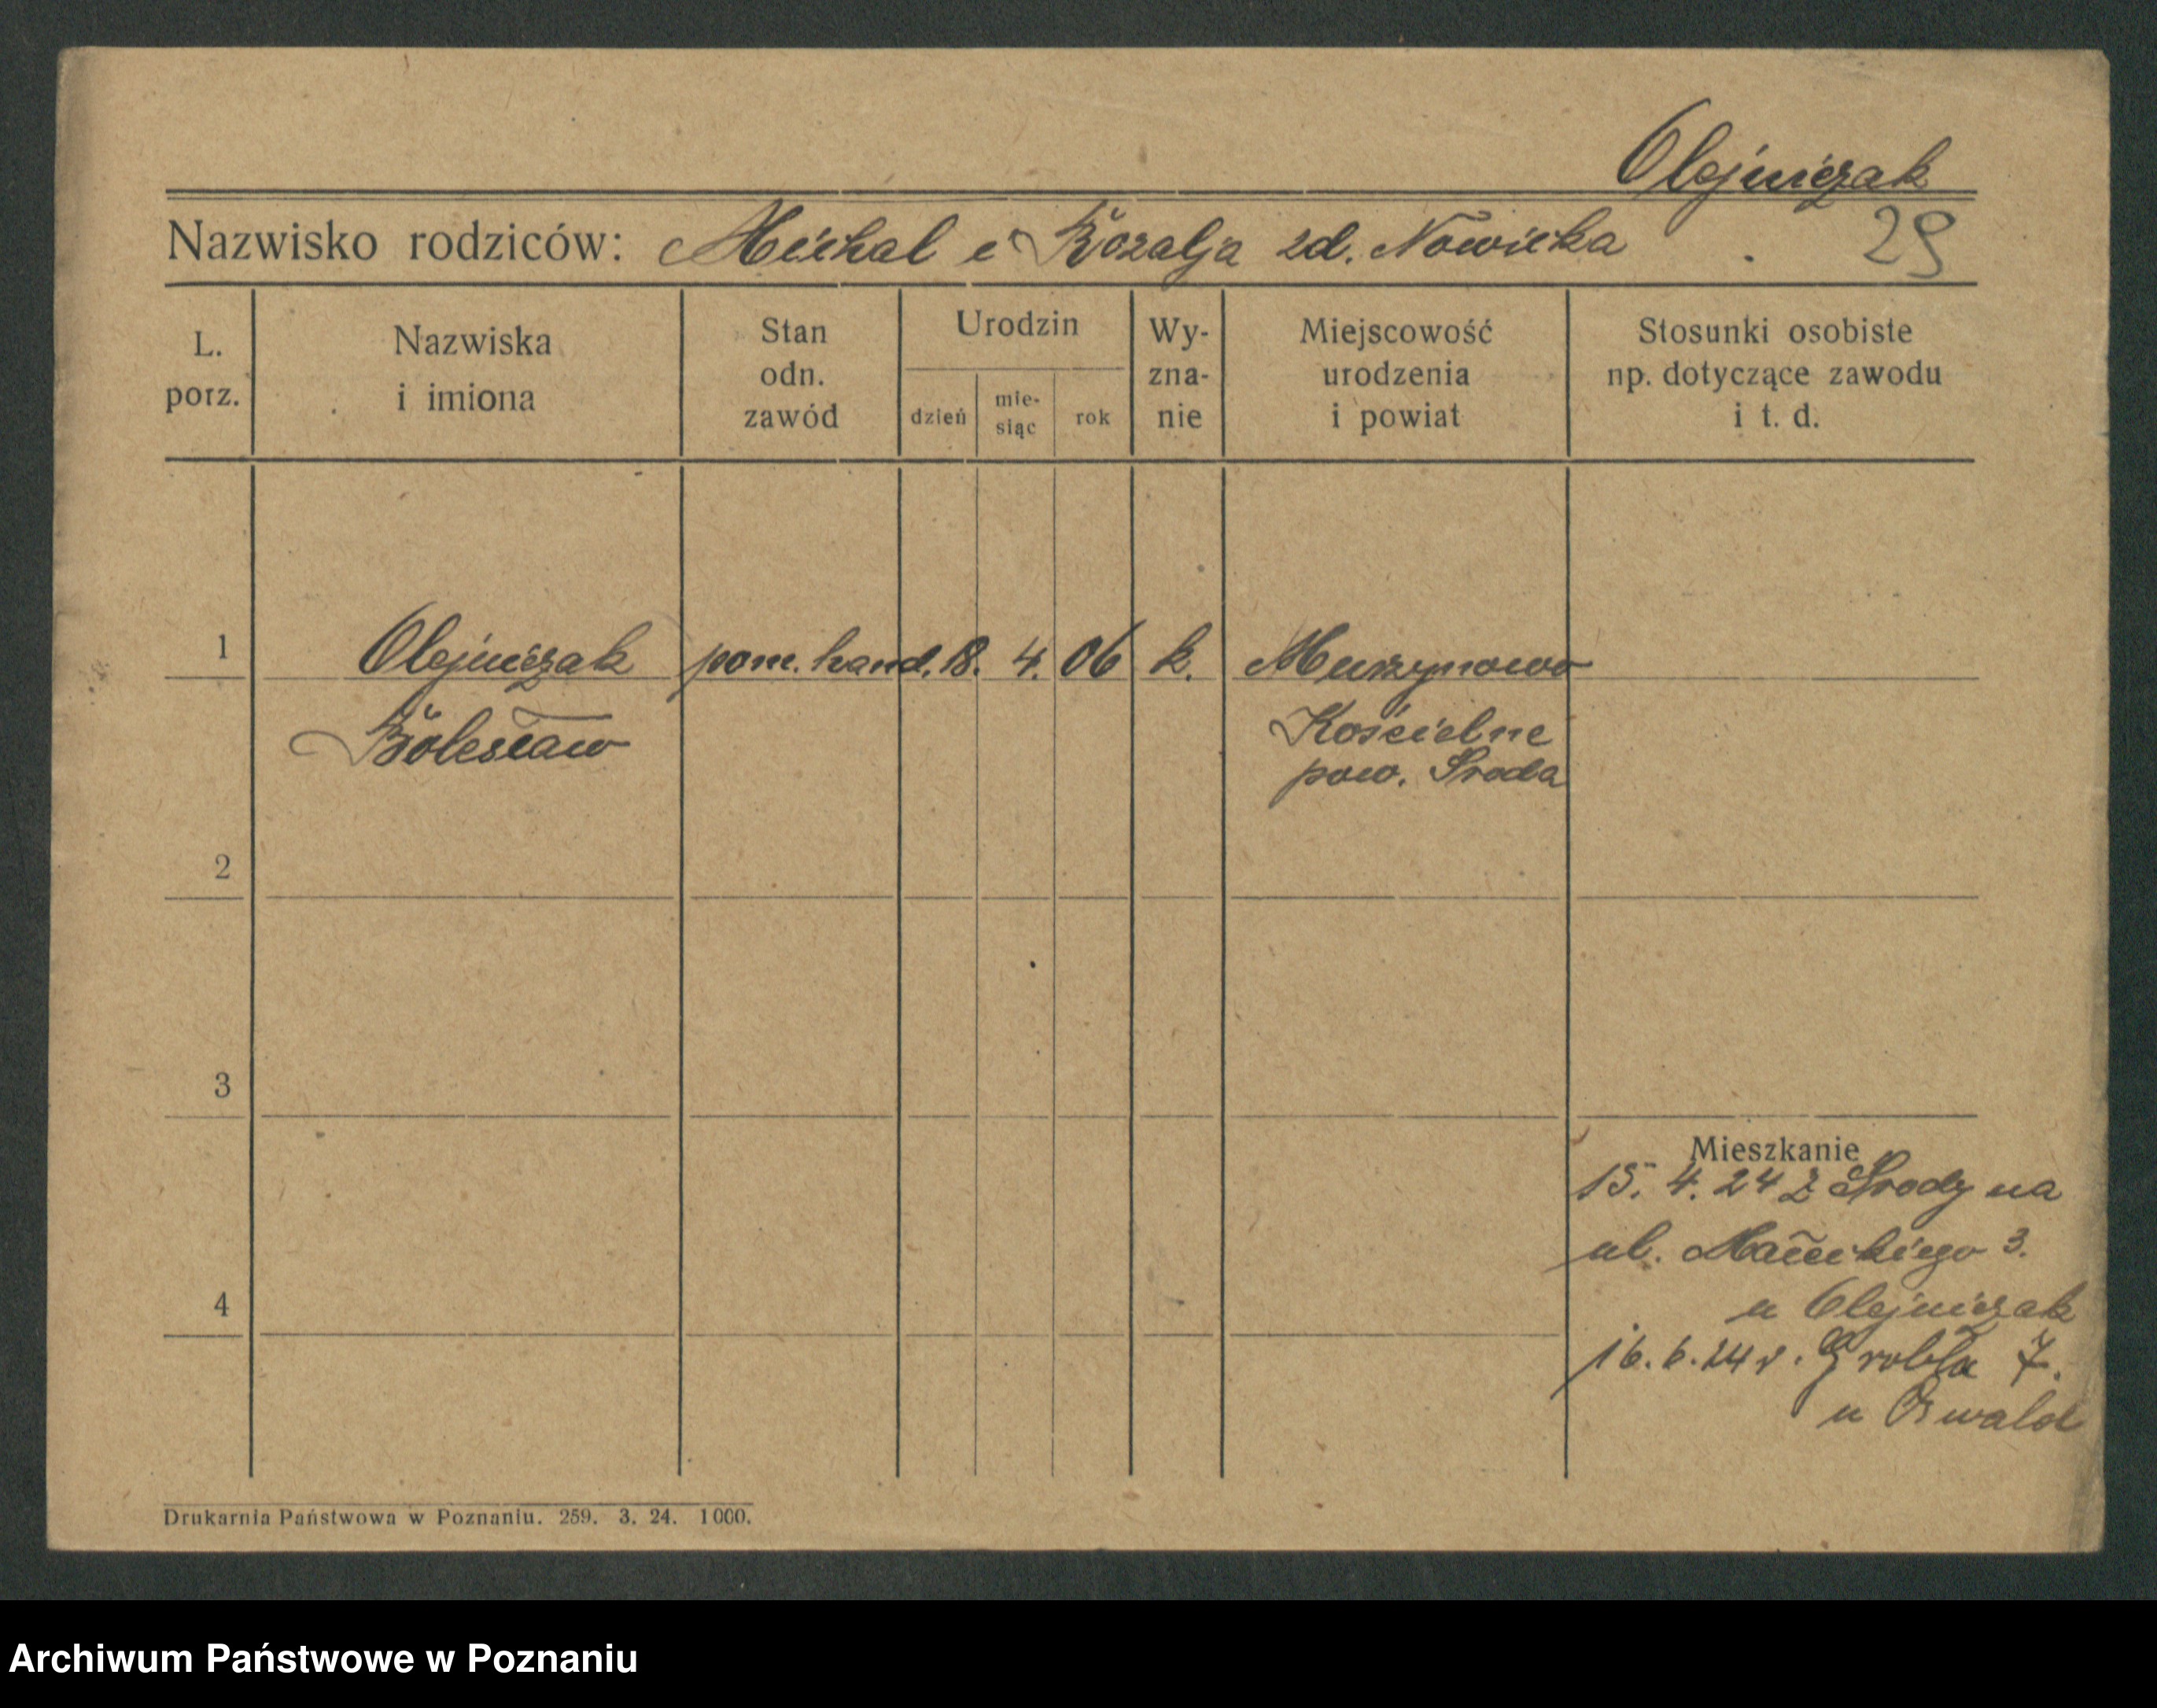 Olejniczak
Nazwisko rodziców: Michał i Rozalja zd. Nowicka 29
L. porz.
Nazwiska i imiona
Stan odn. zawód
Urodzin
dzień
mie-siąc
rok
Wy-zna-nie
Miejscowość urodzenia i powiat
Stosunki osobiste np. dotyczące zawodu i t. d.
1 Olejniczak pom. hand. 18. 4. 06 k. Murzynowo
Bolesław Kościelne
pow. Środa
2
3
Mieszkanie
15. 4. 24 z Środy na
ul. Małeckiego 3.
4
u Olejniczak
16. 6. 24 r. Grobla 7.
u Oswald
Drukarnia Państwowa w Poznaniu. 259. 3. 24. 1000.
Archiwum Państwowe w Poznaniu